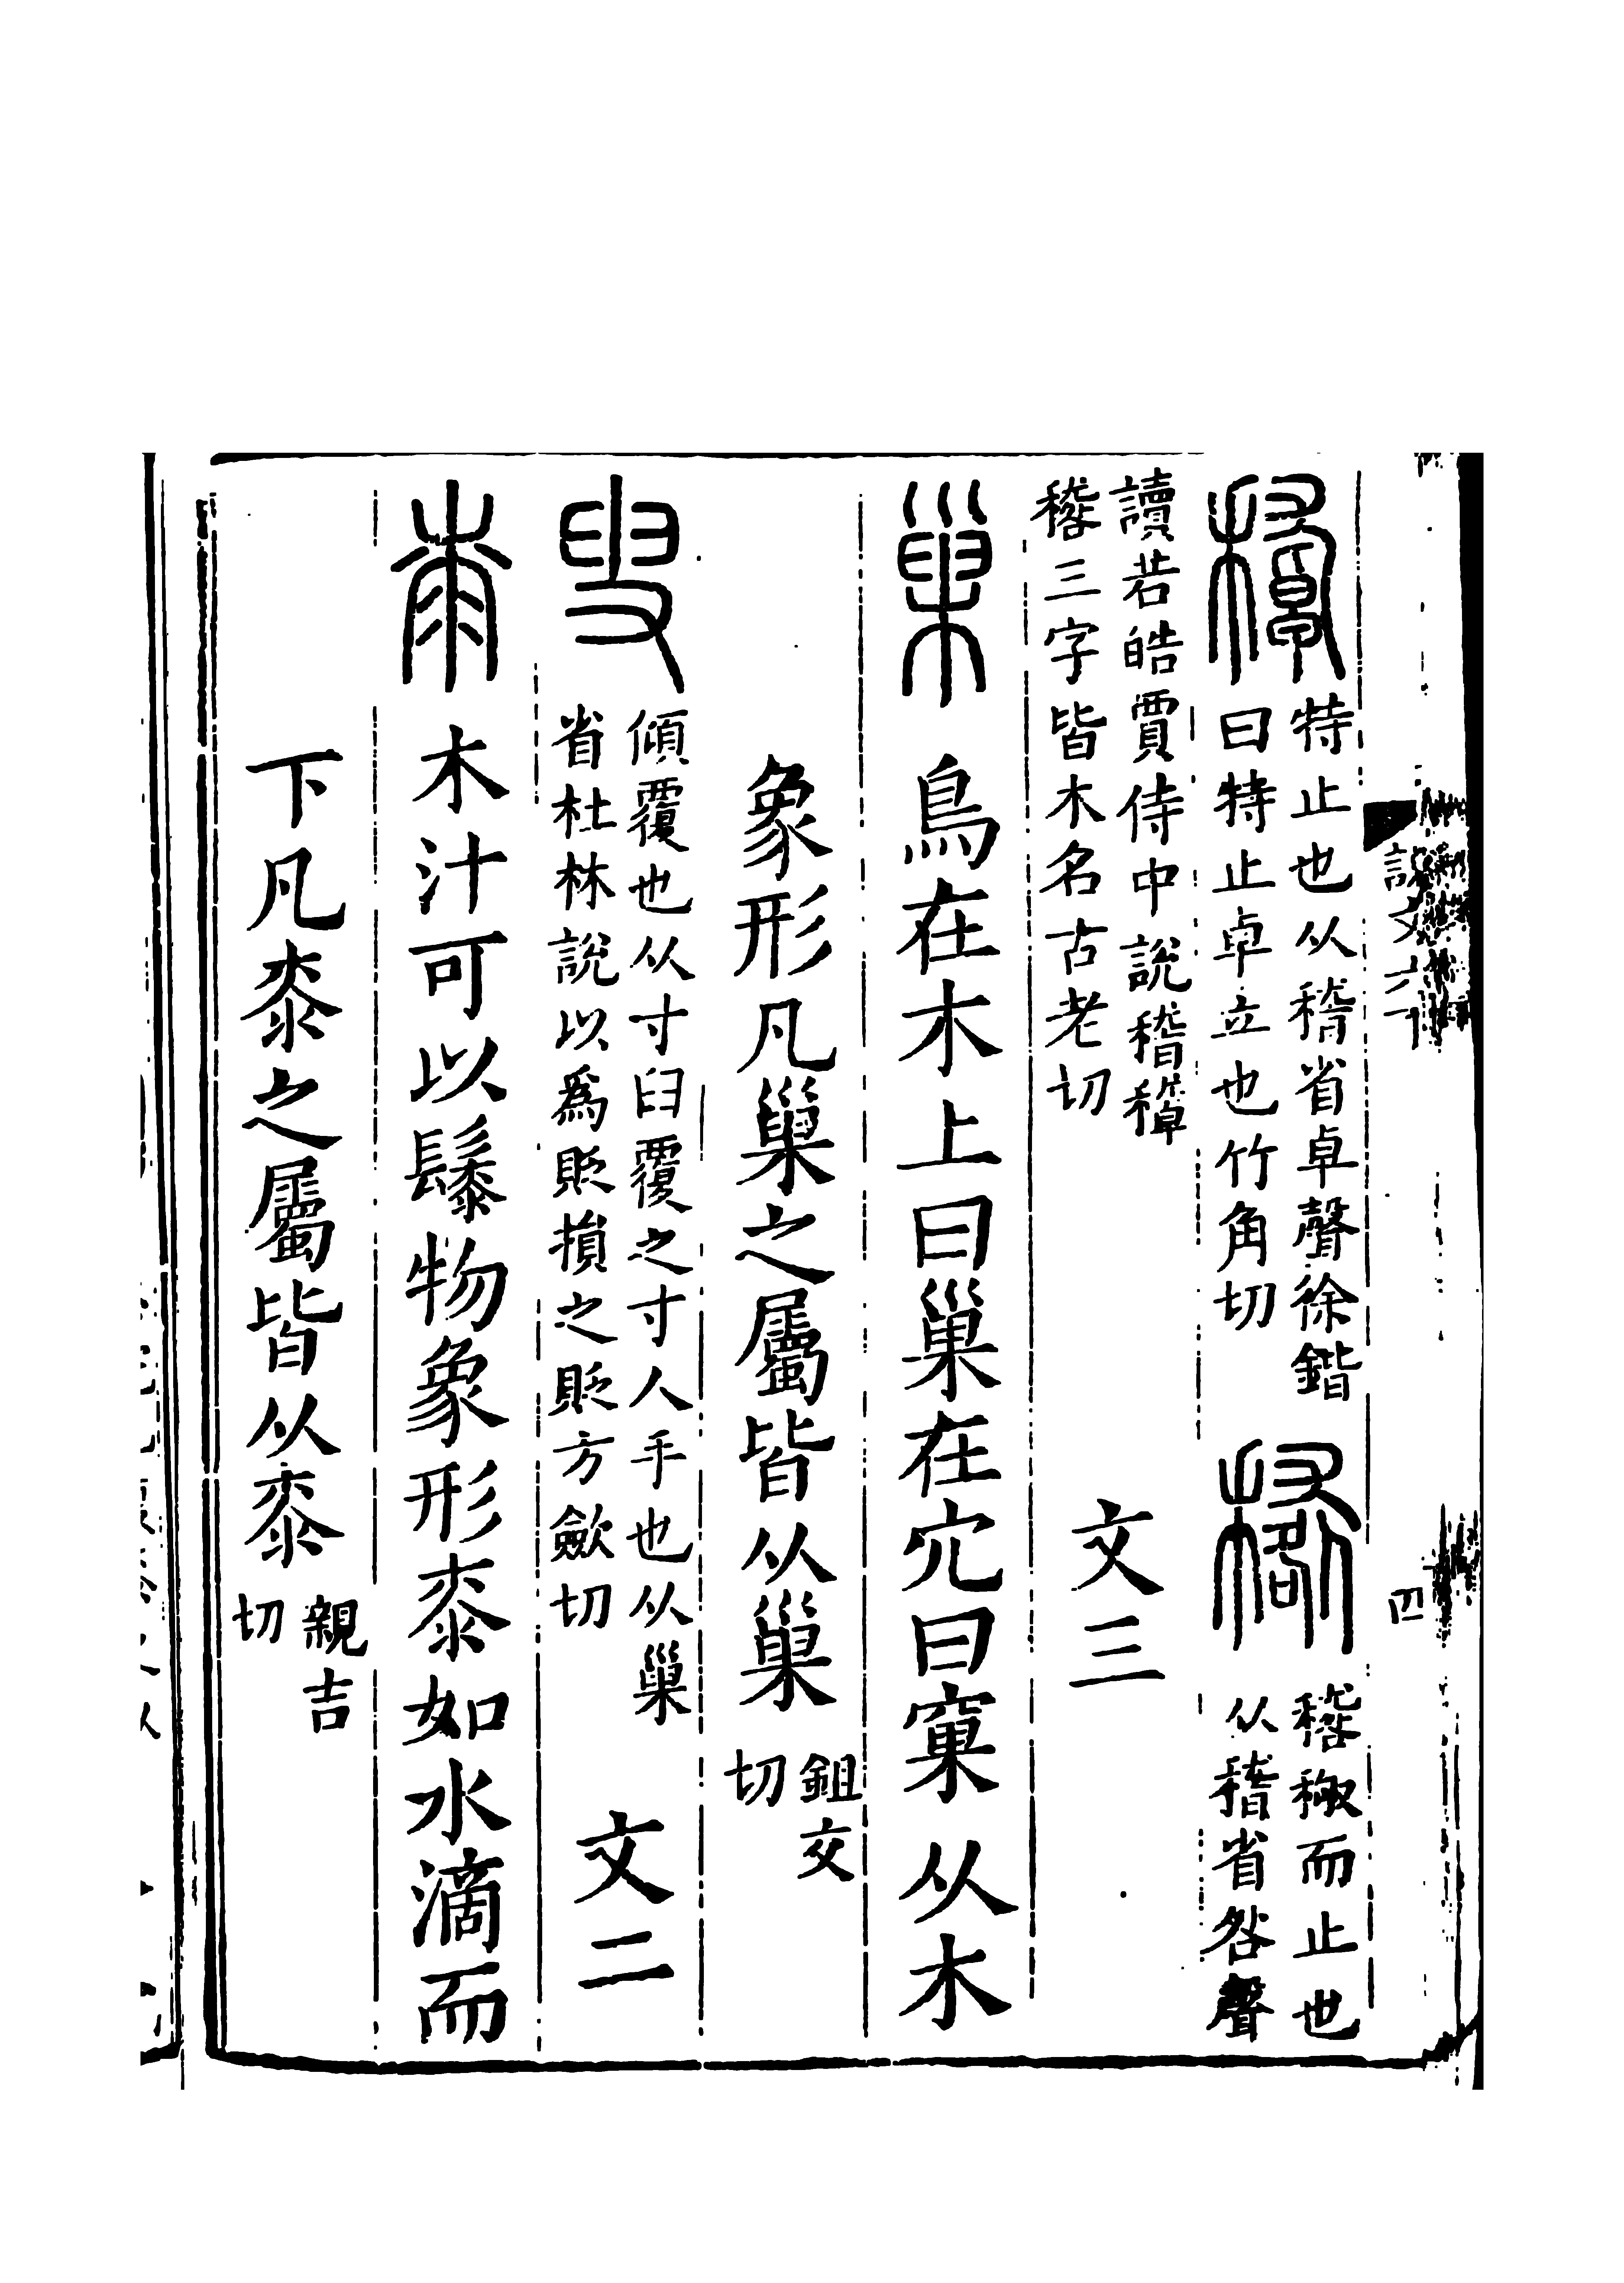 說文六下
四
𥡴特止也从稽省卓聲徐鍇
曰特止卓立也竹角切
𥢔䅳𥡜而止也
从稽省咎聲
讀若皓賈侍中說稽𥡴
𥢔三字皆木名古老切
文三
巢鳥在木上曰巢在穴曰窠从木
象形凡巢之屬皆从巢鉏交
切
𠬛傾覆也从寸臼覆之寸人手也从巢
省杜林說以爲貶損之貶方歛切
文二
桼木汁可以䰍物象形桼如水滴而
下凡桼之屬皆从桼親吉
切